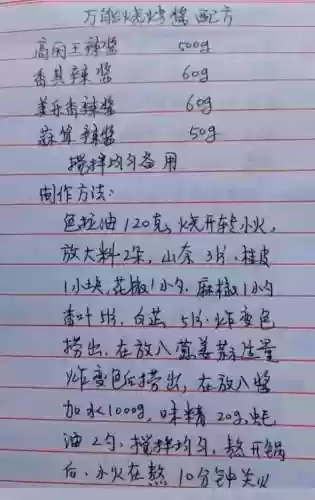 万能烧烤酱配方
高阁王辣酱 500g
香其辣酱 60g
姜力香辣酱 60g
蒜蓉辣酱 50g
搅拌均匀备用
制作方法:
色拉油120克,烧开转小火,
放大料2朵,山奈3片,桂皮
1小块,花椒1小勺,麻椒1小勺
香叶5片,白芷5片,炸变色
捞出,在放入葱姜蒜适量
炸变色后捞出,在放入酱
加水1000g,味精20g,蚝
油2勺,搅拌均匀,熬开锅
后,小火在熬10分钟关火